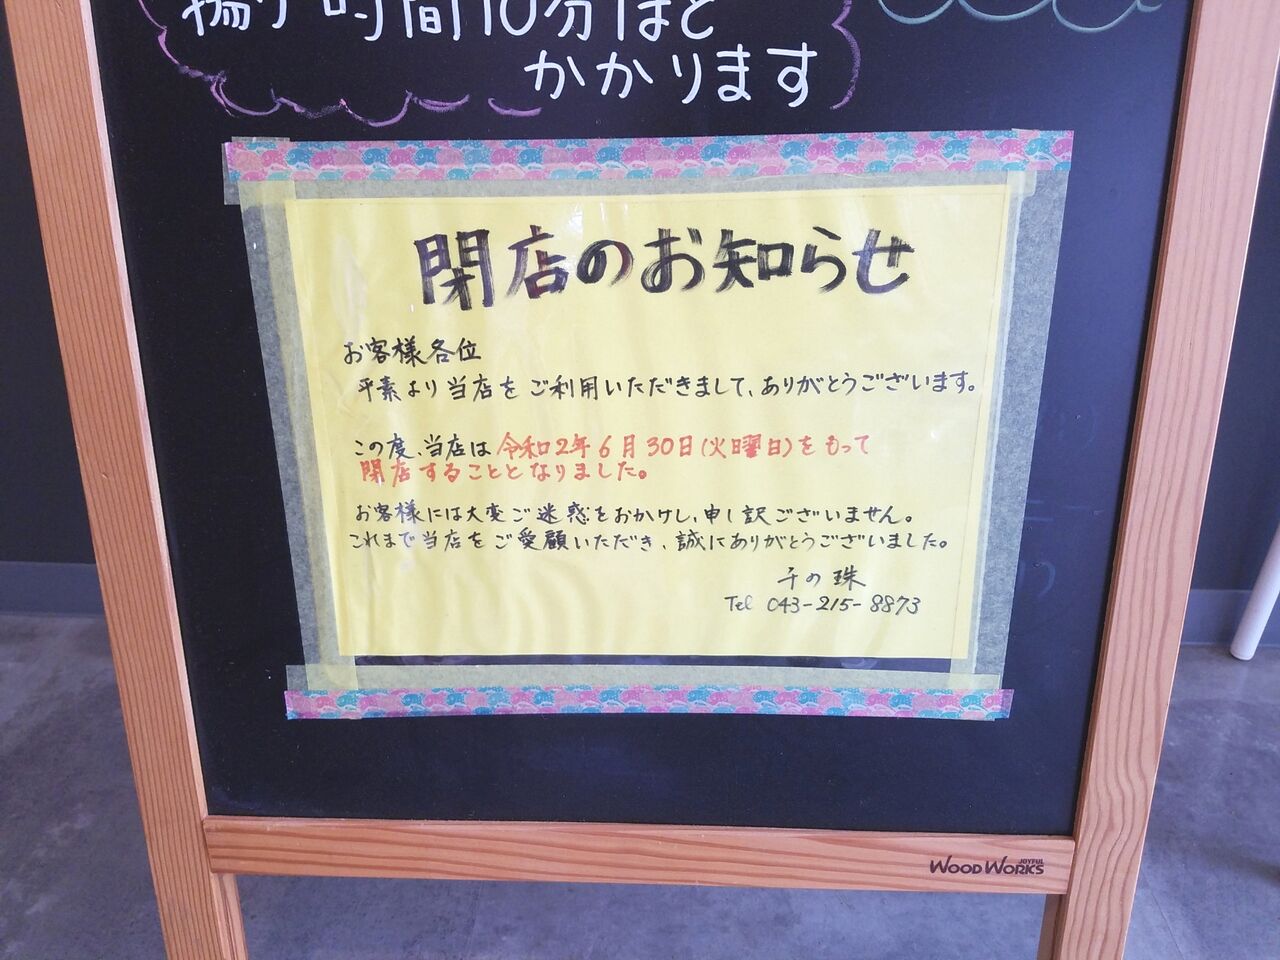 揚げ時間10分ほど
かかります
閉店のお知らせ
お客様各位
平素より当店をご利用いただきまして、ありがとうございます。
この度、当店は令和2年6月30日(火曜日)をもって
閉店することとなりました。
お客様には大変ご迷惑をおかけし、申し訳ございません。
これまで当店をご愛顧いただき、誠にありがとうございました。
千の珠
Tel 043-215-8873
JOYFUL
WOODWORKS